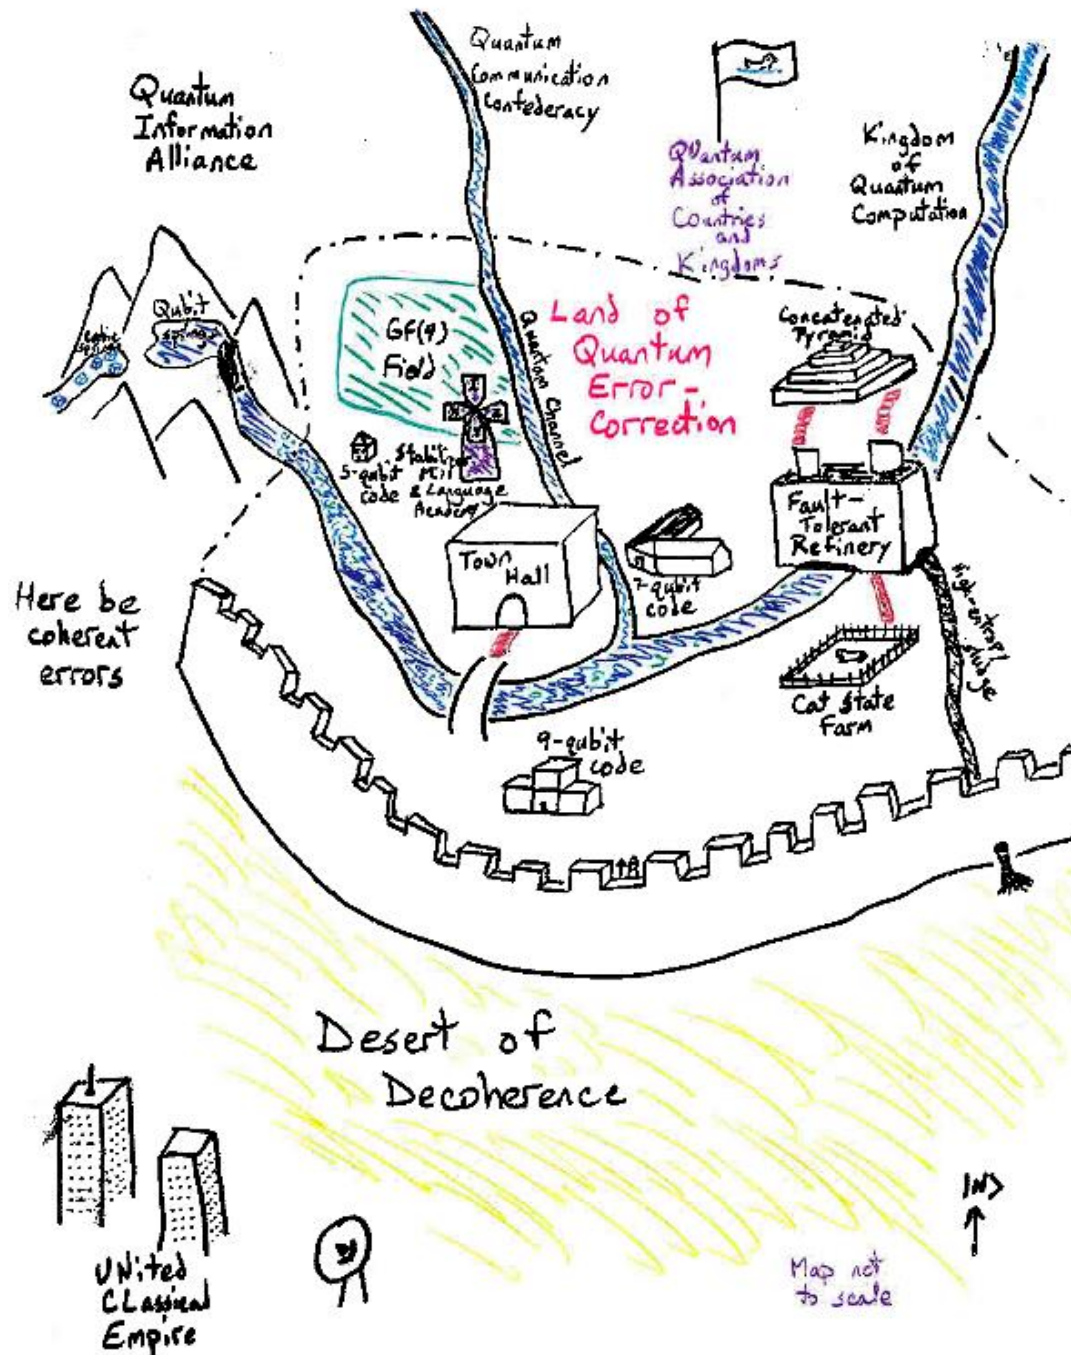 Quantum
Communication
Confederacy
Quantum
Information
Alliance
QUantum
Association
of
Countries
and
Kingdoms
Kingdom
of
Quantum
Computation
Qubit
springs
springs
GF(4)
Field
Quantum Channel
Land of
Quantum
Error-
Correction
Concatenated
Pyramid
5-qubit
code
Stabilizer
Mill
& Language
Academy
Town
Hall
7-qubit
code
Fault-
Tolerant
Refinery
high-entropy
sludge
Here be
coherent
errors
Cat State
Farm
9-qubit
code
Desert of
Decoherence
UNited
CLassical
Empire
|N>
Map not
to scale